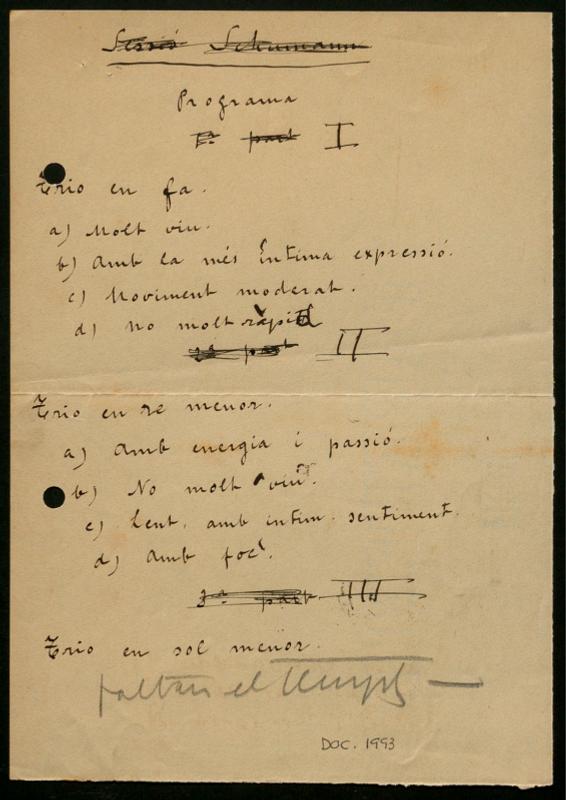 Sessió Schumann
Programa
1ª part I
Trio en fa.
a) Molt viu.
b) Amb la més íntima expressió.
c) Moviment moderat.
d) No molt ràpid
2ª part II
Trio en re menor.
a) Amb energia i passió.
b) No molt viu.
c) Lent, amb intim sentiment.
d) Amb foc.
3ª part III
Trio en sol menor.
faltan el
DOC. 1993